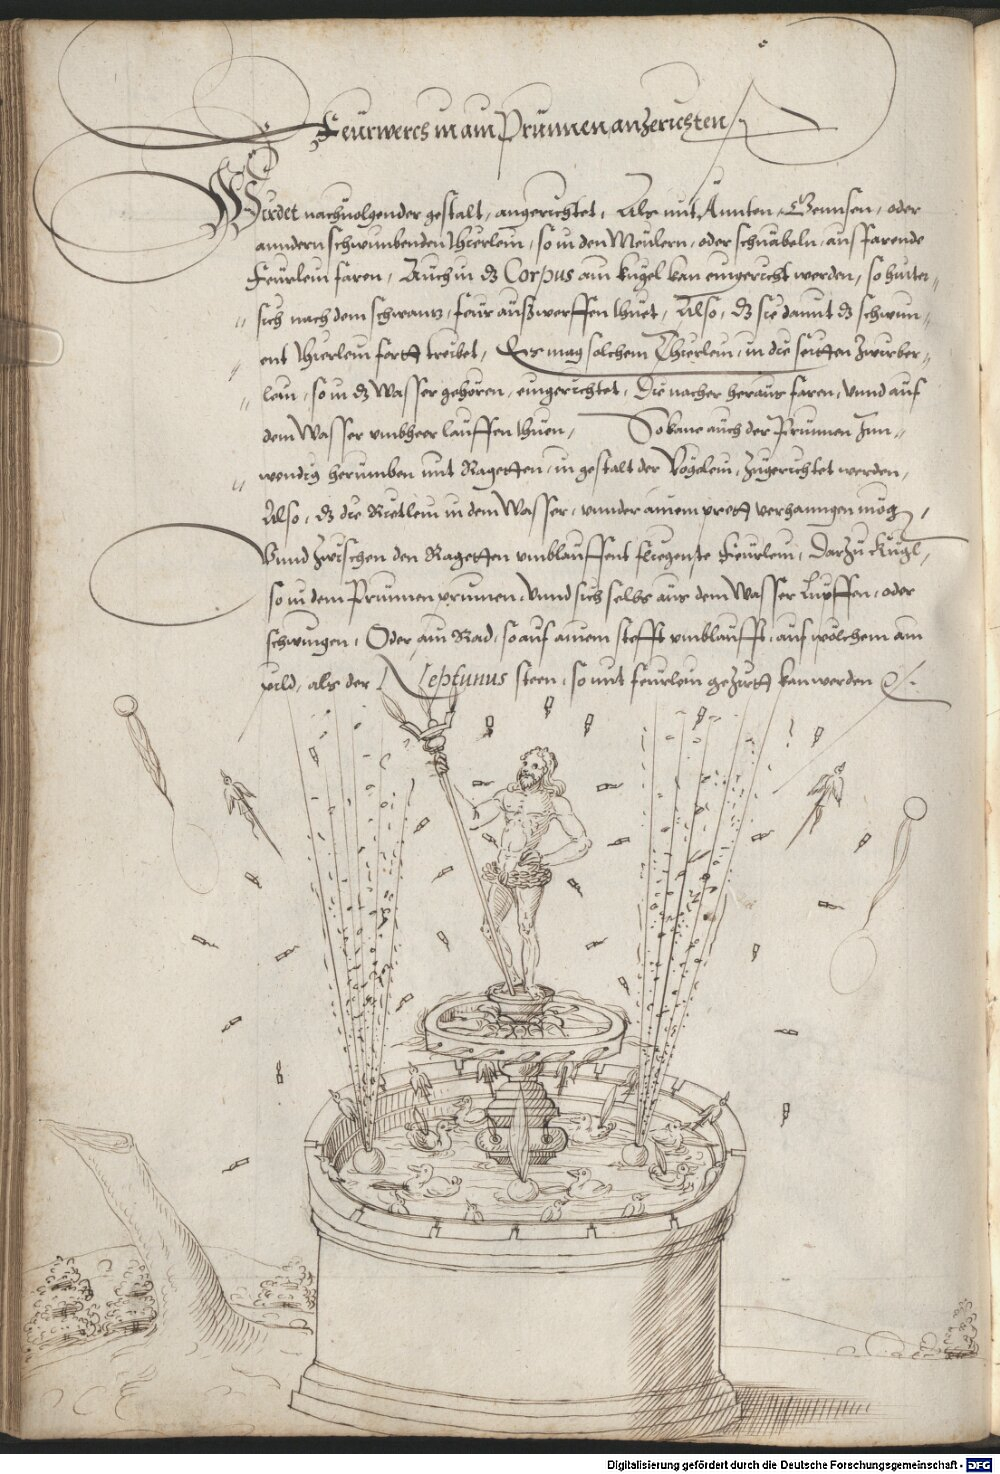 Feurwerch in ain Prunnen anzerichten
Wirdet nachuolgender gestalt, angerichtet, Als mit Annten, Gennsen, oder
anndern schwimbenden thierlein, so in den Meulern, oder schnäbeln, auffarende
Feurlein faren, Auch in dz Corpus ain kugel kan eingericht werden, so hinter
sich nach dem schwantz, feur außwerffen thuet, Also, dz sie damit dz schwim
ent thierlein fortt treibet, Es mag solchem Thierlein, in die seitten Zwirber
lein, so in dz Wasser gehören, eingerichtet, Die nacher heraus faren, Vnnd auf
dem Wasser vmbheer lauffen thuen, So kane auch der Prunnen Inn
wendig herumben mit Ragetten, in gestalt der Vögelein, Zugerichtet werden,
Also, dz die Rietlein in dem Wasser, vnnder ainem prett verhanngen mög,
Vnnd Zwischen den Ragetten vmblauffent fliegente Feurlein, Darzu Kugl,
so in dem Prunnen prinnen, Vnnd sich selbs aus dem Wasser Lupffen, oder
schwingen, Oder ain Rad, so auf ainem stefft vmblaufft, auf wölchem ain
pild, als der Neptunus steen, so mit feurlein geziertt kan werden &.
Digitalisierung gefördert durch die Deutsche Forschungsgemeinschaft - DFG